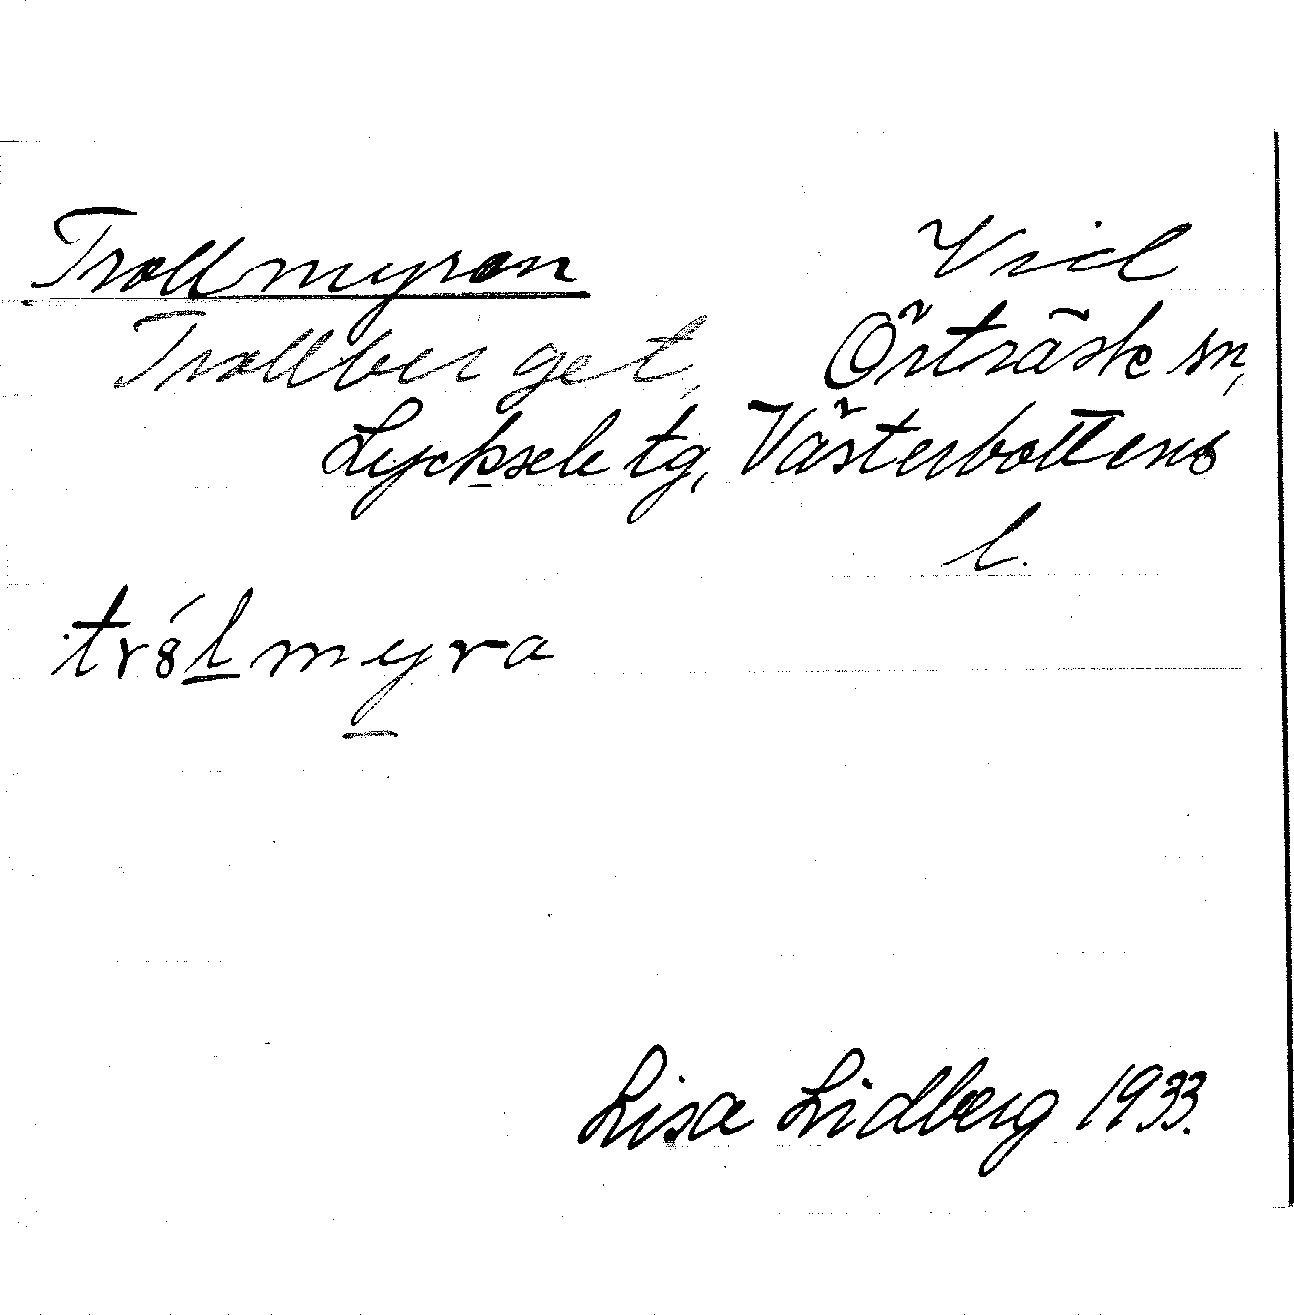 Trollmyran Vid
Trollberget, Örträsk sn,
Lycksele tg, Västerbottens
l.
tról myra
Lisa Lidberg 1933.